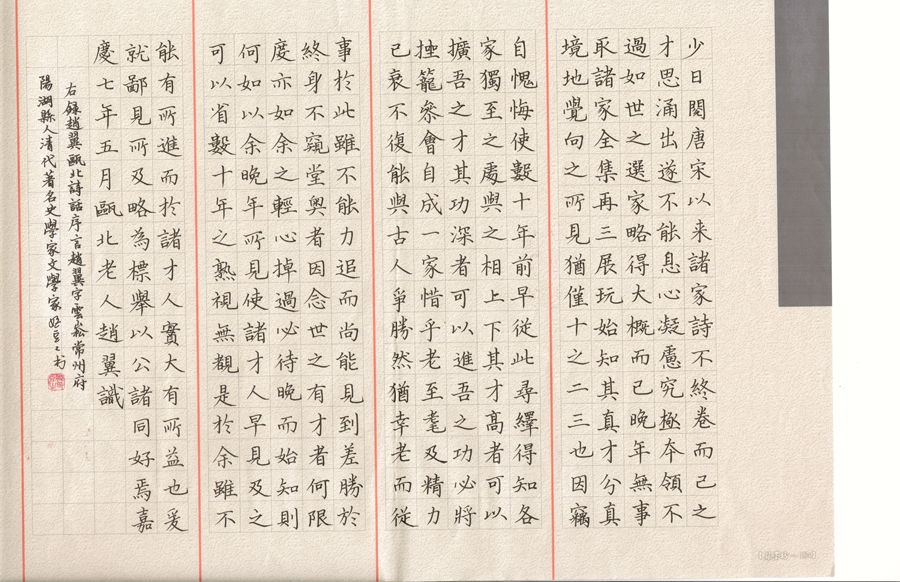 少日閱唐宋以来諸家詩不終卷而已之
才思涌出遂不能息心凝慮究極夲領不
過如世之選家略得大概而已晚年無事
取諸家全集再三展玩始知其真才分真
境地覺句之所見猶僅十之二三也因竊
自愧悔使數十年前早從此尋繹得知各
家獨至之處與之相上下其才高者可以
擴吾之才其功深者可以進吾之功必將
挫籠參會自成一家惜乎老至耄及精力
已衰不復能與古人爭勝然猶幸老而從
事於此雖不能力追而尚能見到差勝於
終身不窺堂奧者因念世之有才者何限
度亦如余之輕心掉過必待晚而始知則
何如以余晚年所見使諸才人早見及之
可以省數十年之熟視無覩是於余雖不
能有所進而於諸才人實大有所益也爰
就鄙見所及略為標舉以公諸同好焉嘉
慶七年五月甌北老人趙翼識
右錄趙翼甌北詩話序言趙翼字雲崧常州府
陽湖縣人清代著名史學家文學家书